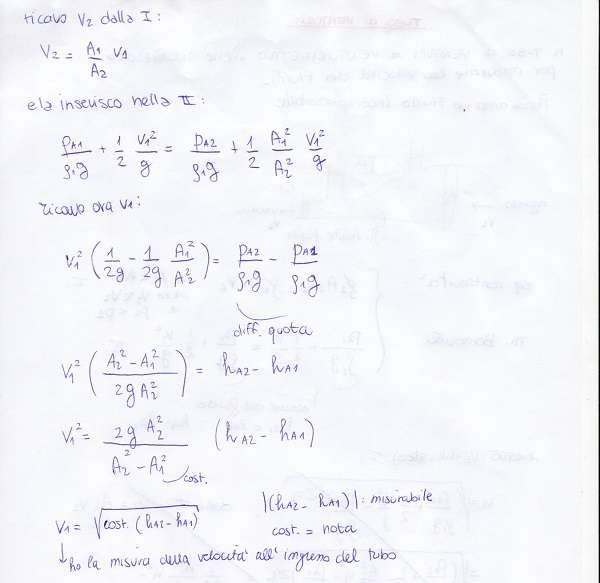 ricavo V₂ dalla I:
V₂ = A₁/A₂ V₁
e la inserisco nella II:
p_A1/ρ₁g + 1/2 V₁²/g = p_A2/ρ₁g + 1/2 A₁²/A₂² V₁²/g
ricavo ora V₁:
V₁² (1/2g - 1/2g A₁²/A₂²) = p_A2/ρ₁g - p_A1/ρ₁g
diff. quota
V₁² (A₂² - A₁² / 2g A₂²) = h_A2 - h_A1
V₁² = 2g A₂² / A₂² - A₁² (h_A2 - h_A1)
cost.
V₁ = √cost. (h_A2 - h_A1) |(h_A2 - h_A1)|: misurabile
cost. = nota
↓ ho la misura della velocità all' ingresso del tubo